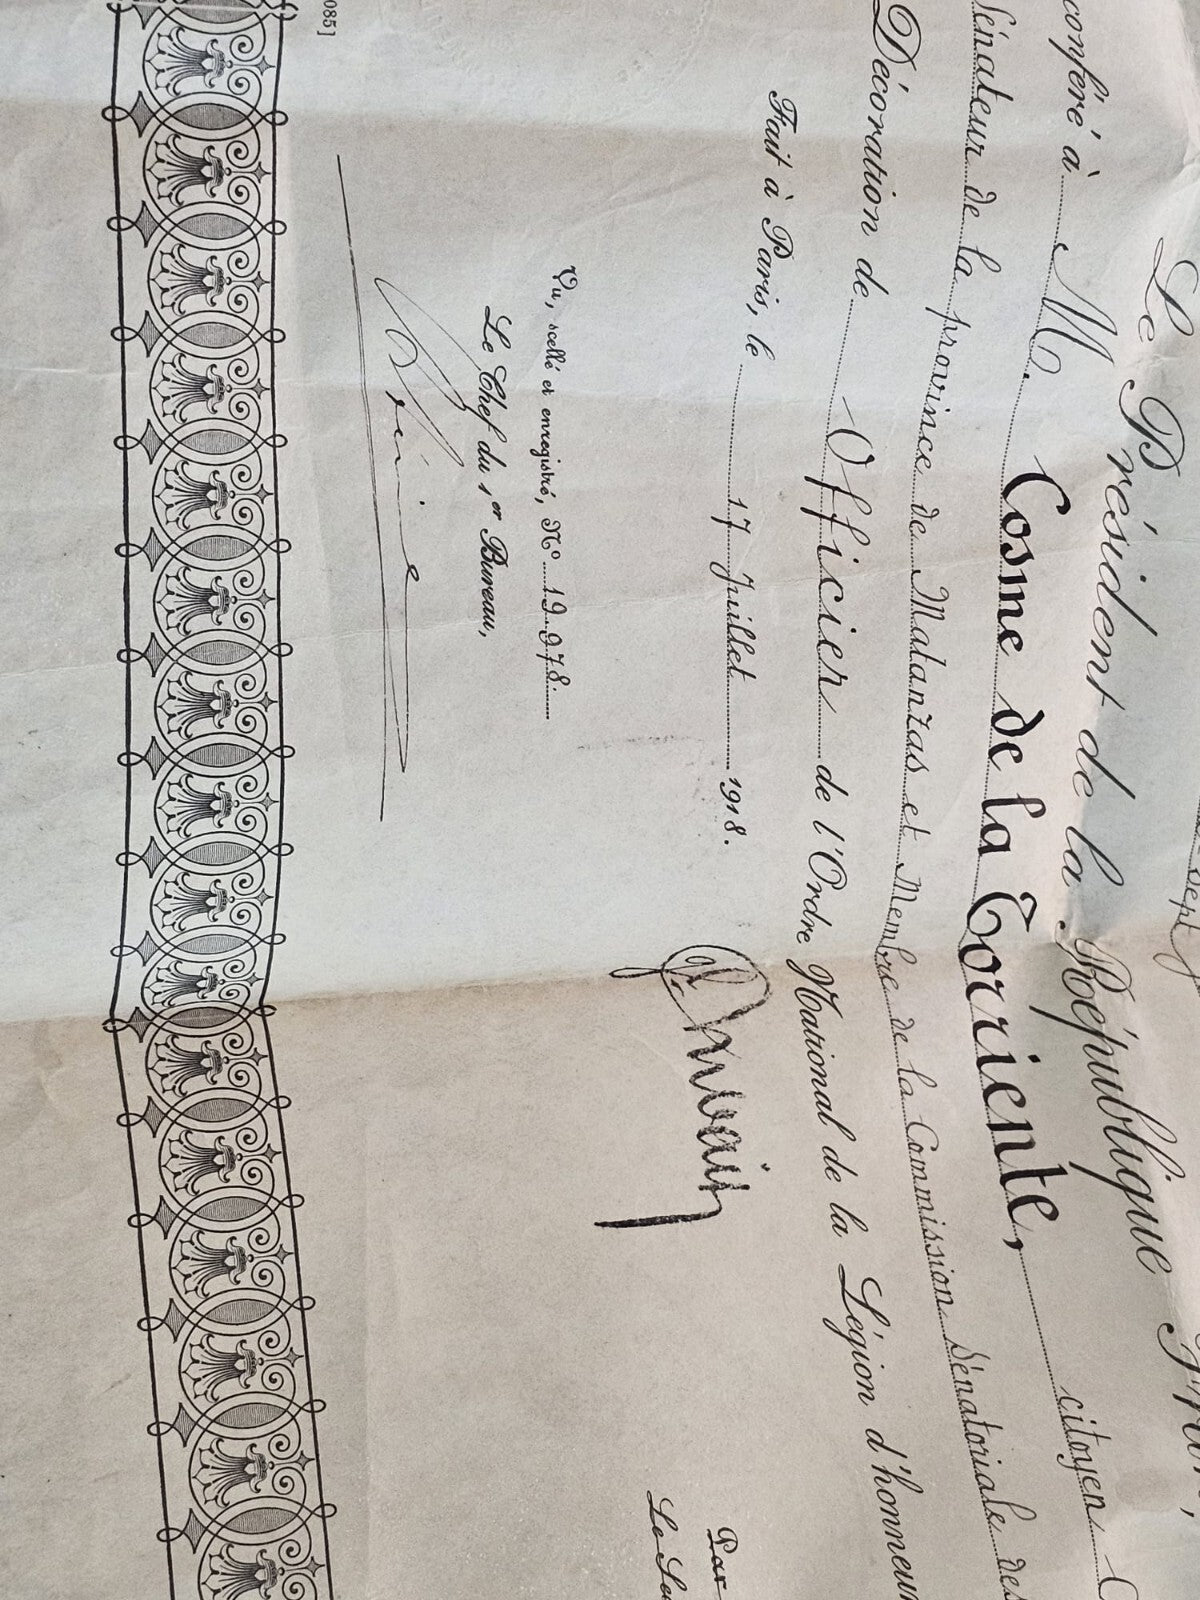 sept
Le Président de la République
conféré à M. Cosme de la Torriente, citoyen
Sénateur de la province de Matanzas et Membre de la Commission Sénatoriale des
Décoration de Officier de l'Ordre National de la Légion d'honneur
Fait à Paris, le 17 Juillet 1918.
Par
Vu, scellé et enregistré, N° 19.978.
Le Chef du 1er Bureau,
085]